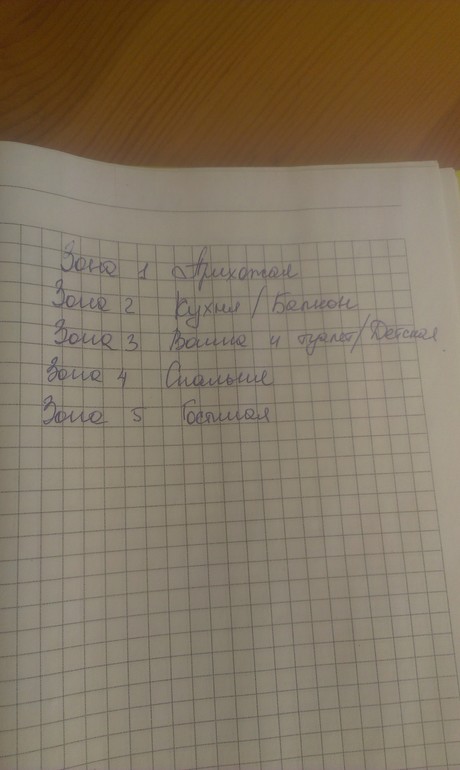 Зона 1 Прихожая
Зона 2 Кухня / Балкон
Зона 3 Ванна и туалет/Детская
Зона 4 Спальня
Зона 5 Гостиная